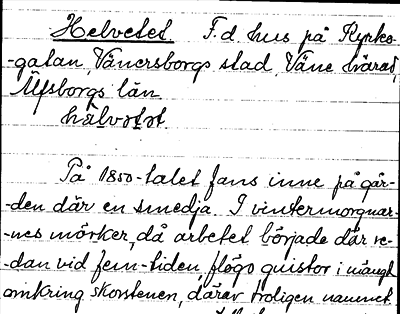 Helvetet. F.d. hus på Kyrko-
-gatan, Vänersborgs stad, Väne härad,
Älfsborgs län.
hälvətət.
På 1850-talet fans inne på går-
-den där en smedja. I vintermorgnar-
-nes mörker, då arbetet började där re-
-dan vid fem-tiden, flögo gnistor i mängd
omkring skorstenen, därav troligen namnet